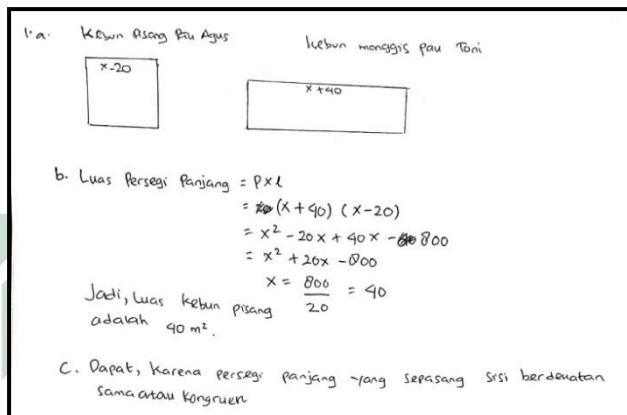 1.a. Kebun Pisang Pau Agus
Kebun manggis pau Toni
x-20
x+40
b. Luas Persegi Panjang = P x l
= (x+40) (x-20)
= x² - 20x + 40x - 800
= x² + 20x - 800
x = 800/20 = 40
Jadi, luas kebun pisang
adalah 40 m².
C. Dapat, karena persegi panjang yang sepasang sisi berdeuatan
sama atau kongruen